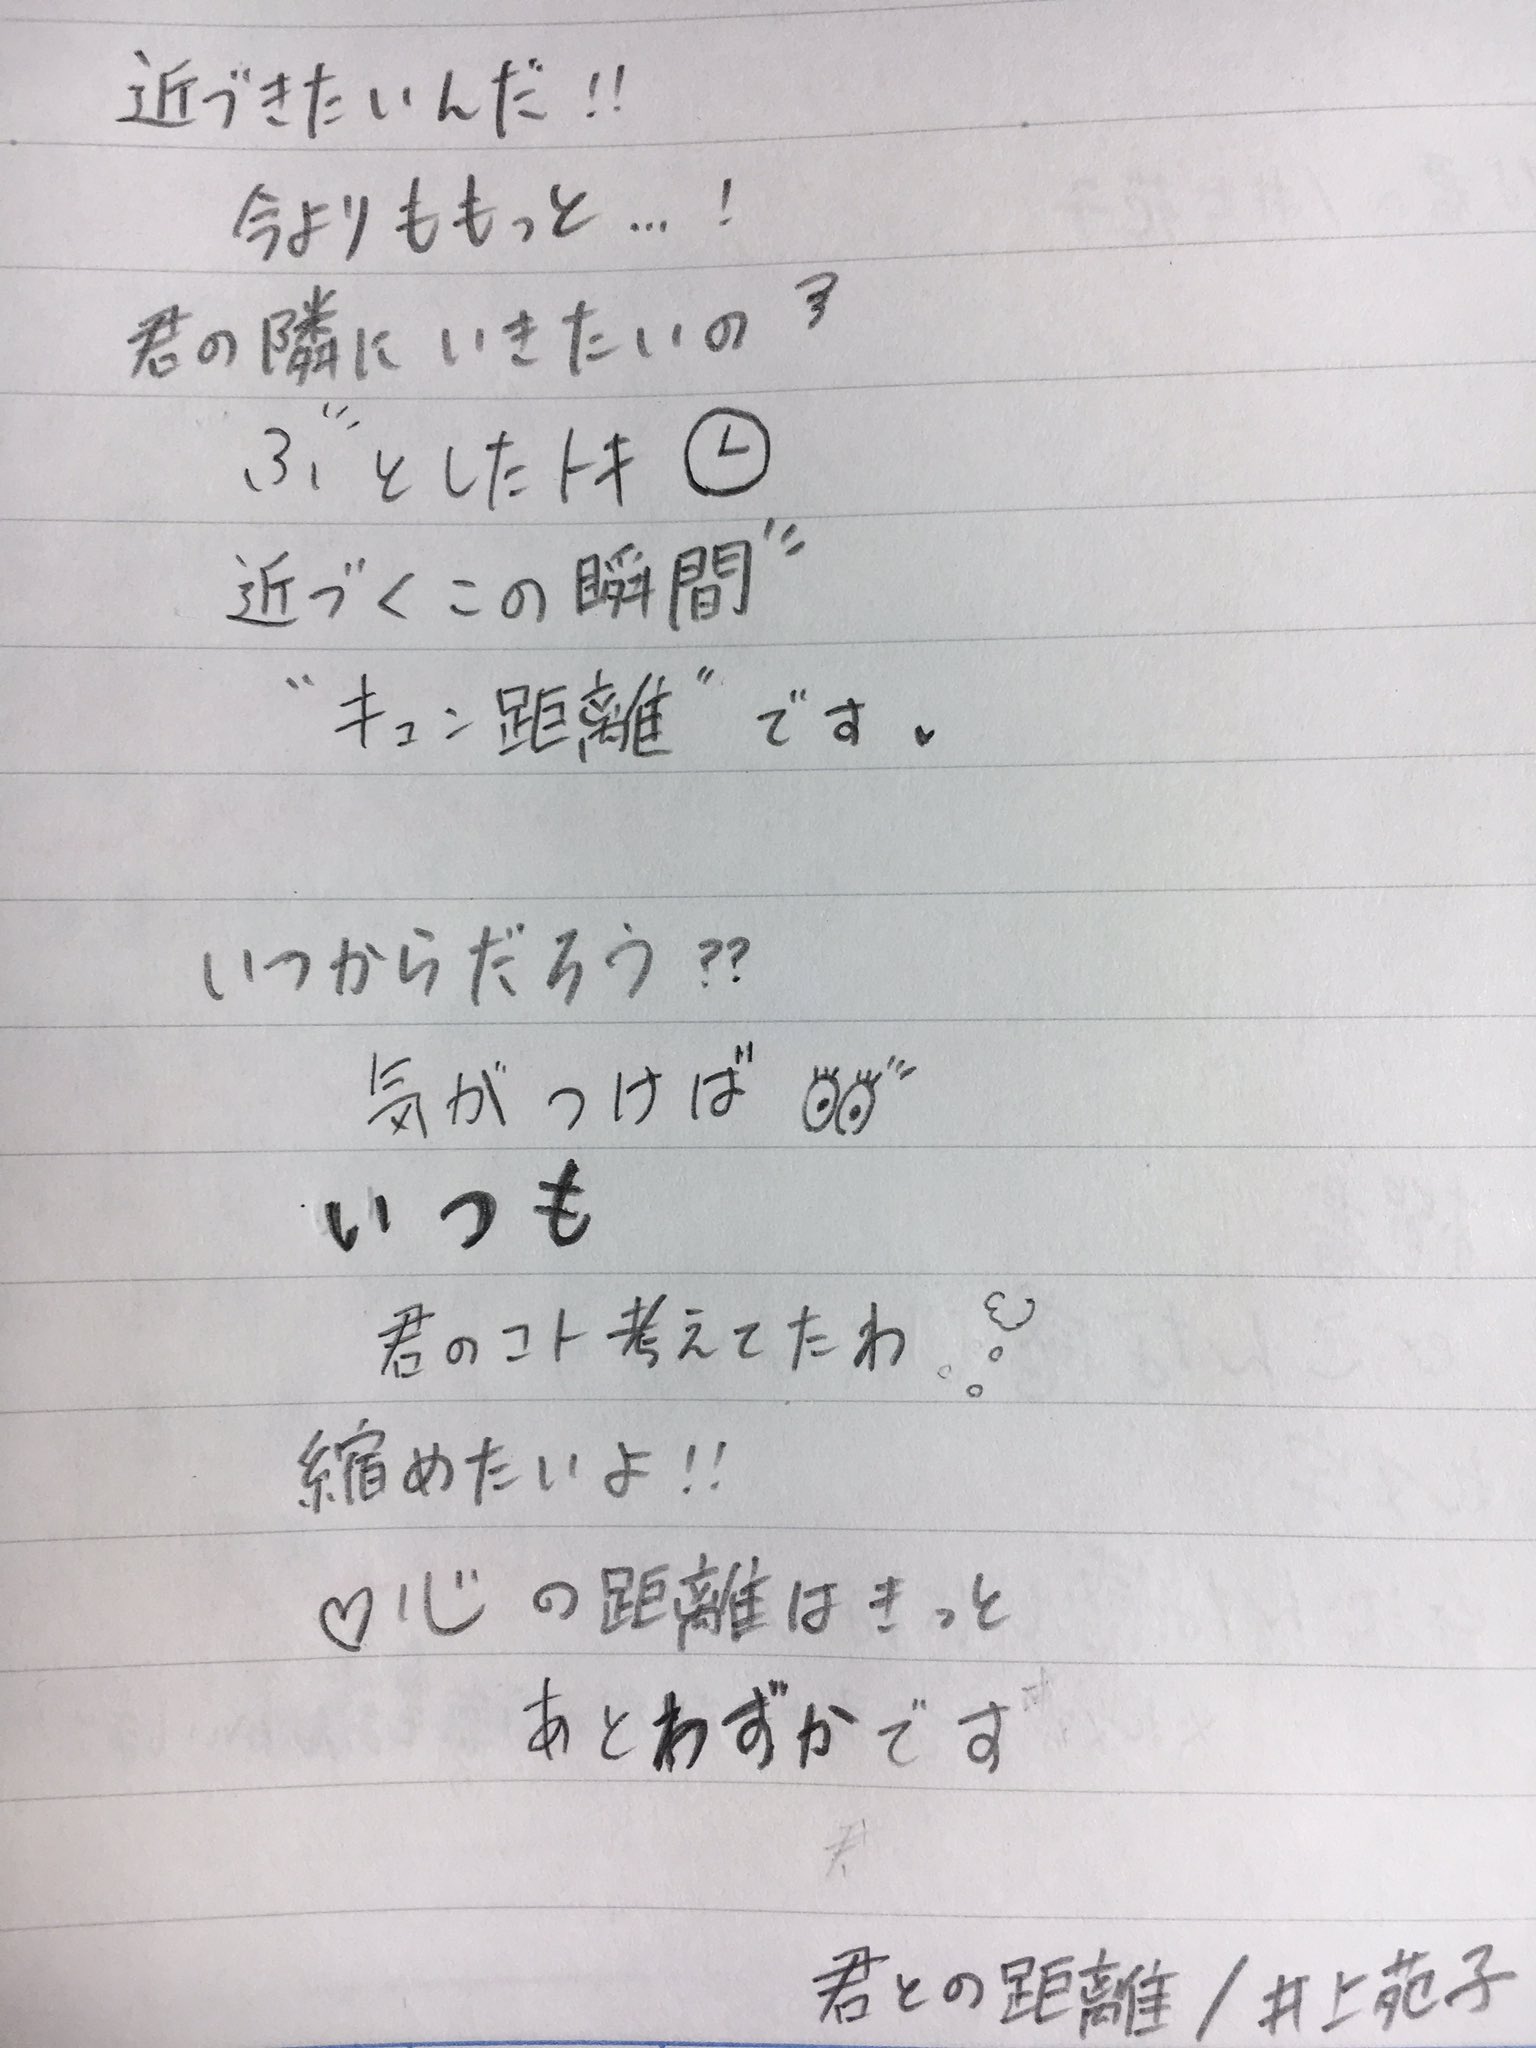 近づきたいんだ!!
今よりももっと…!
君の隣にいきたいの
ふ"としたトキ
近づくこの瞬間"
"キュン距離"です♥
いつからだろう??
気がつけば
いつも
君のコト考えてたわ
縮めたいよ!!
♡心の距離はきっと
あとわずかです
君との距離/井上苑子